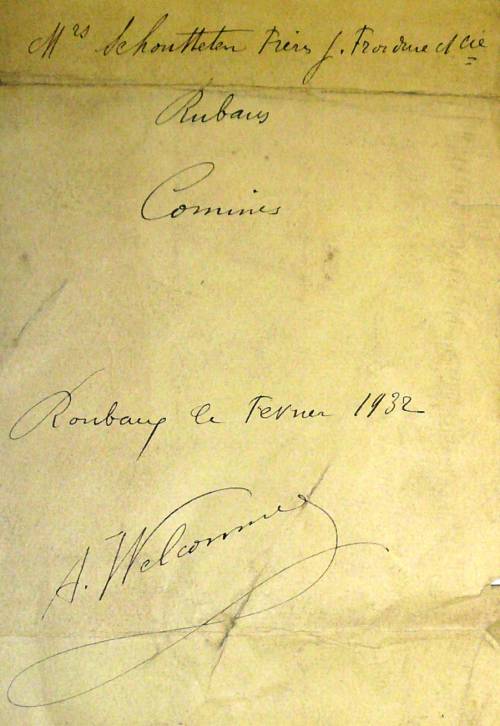 Mrs Schoutteten Frères J. Froidure et Cie
Rubans
Comines
Roubaix le Fevrier 1932
A. Welcomme